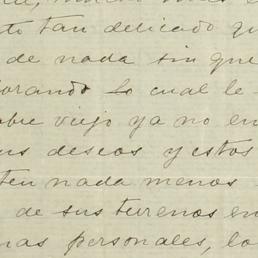 tan delicado
de nada sin que
orando lo cual le
viejo ya no en
deseos y estos
ten nada menos
de sus terrenos en
nas personales, lo